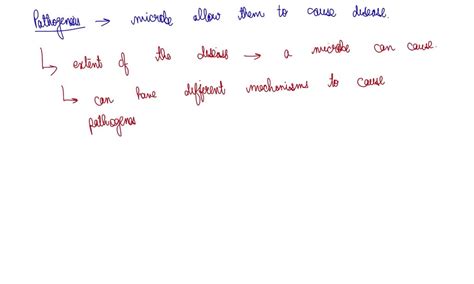 Pathogenesis → microbe allow them to cause disease.
↳ extent of the disease → a microbe can cause.
↳ can have different mechanisms to cause
pathogenes